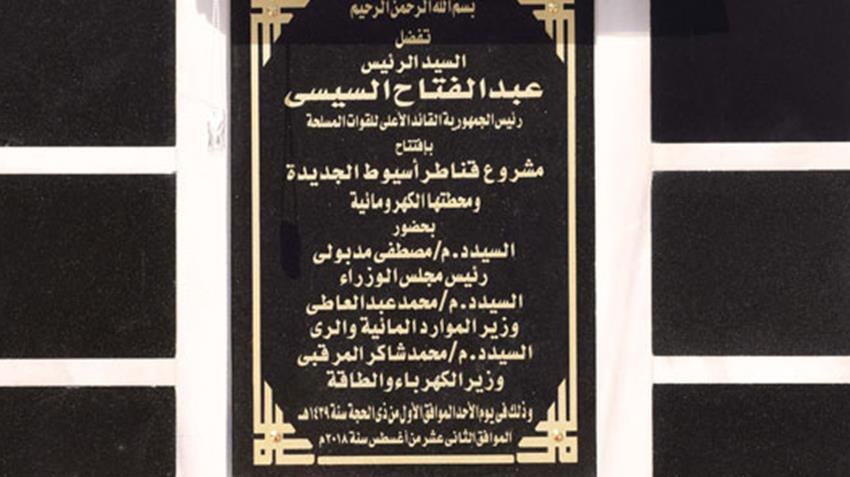 بسم الله الرحمن الرحيم
تفضل
السيد الرئيس
عبد الفتاح السيسى
رئيس الجمهورية القائد الأعلى للقوات المسلحة
بإفتتاح
مشروع قناطر أسيوط الجديدة
ومحطتها الكهرومائية
بحضور
السيد د.م/مصطفى مدبولى
رئيس مجلس الوزراء
السيد د.م/محمد عبد العاطى
وزير الموارد المائية والرى
السيد د.م/محمد شاكر المرقبى
وزير الكهرباء والطاقة
وذلك فى يوم الأحد الموافق الأول من ذى الحجة سنة ١٤٣٩هـ
الموافق الثانى عشر من أغسطس سنة ٢٠١٨م